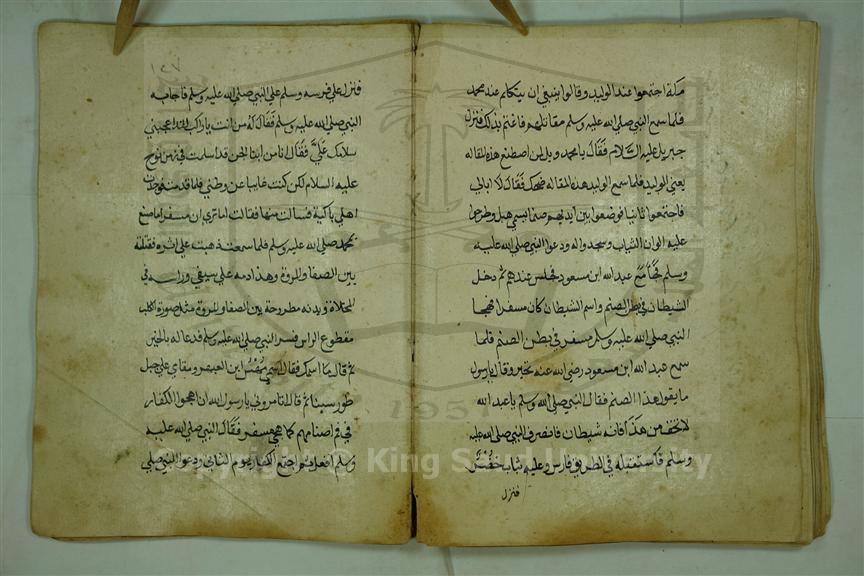 مكة اجتمعوا عند الوليد وقالوا ينبغي ان يتكلم عند محمد
فلما سمع النبي صلى الله عليه وسلم مقالتهم فاغتم بذلك فنزل
جبريل عليه السلام فقال يا محمد ويل لمن اصطنع هذه المقاله
يعني الوليد فلما سمع الوليد هذه المقاله ضحك فقال لا ابالي
فاجتمعوا ثانيا فوضعوا بين ايديهم صنما يسمى هبل وطرحوا
عليه الوان الثياب وسجدوا له ودعوا النبي صلى الله عليه
وسلم فجاء مع عبد الله ابن مسعود فجلس عندهم ثم دخل
الشيطان في بطن الصنم واسم الشيطان كان مسفرا فهجا
النبي صلى الله عليه وسلم مسفر في بطن الصنم فلما
سمع عبد الله ابن مسعود رضي الله عنه تحير وقال يا رسول
ما يقول هذا الصنم فقال النبي صلى الله وسلم يا عبد الله
لا تخف من هذا فانه شيطان فانصرف النبي صلى الله عليه
وسلم فاستقبله في الطريق فارس وعليه ثياب خضر
فنزل
فنزل على فرسه وسلم على النبي صلى الله عليه وسلم فاجابه
النبي صلى الله عليه وسلم فقال له من انت يا راكب لقد اعجبني
سلامك علي فقال انا من ابنا الجن قد اسلمت في زمن نوح
عليه السلام لكن كنت غايبا عن وطني فلما قدمت
اهلي باكية فسالت منها فقالت اما ترى ان مسفرا ما صنع
بمحمد صلى الله عليه وسلم فلما سمعت ذهبت على اثره فقتلته
بين الصفا والمروة وهذا دمه على سيفي وراسه في
المخلاة وبدنه مطروحة بين الصفا والمروة مثل صورة الكلب
مقطوع الراس فسر النبي صلى الله عليه وسلم فدعا له بالخير
ثم قال ما اسمك فقال اسمي ابن العبهر ومقامي على جبل
طور سينا ثم قال اتامروني يا رسول الله ان اهجوا الكفار
في اصنامهم كما هجى مسفر فقال النبي صلى الله عليه
وسلم افعل ثم اجتمع الكفار يوم الثاني ودعوا النبي صلى
Copyright © King Saud University
195